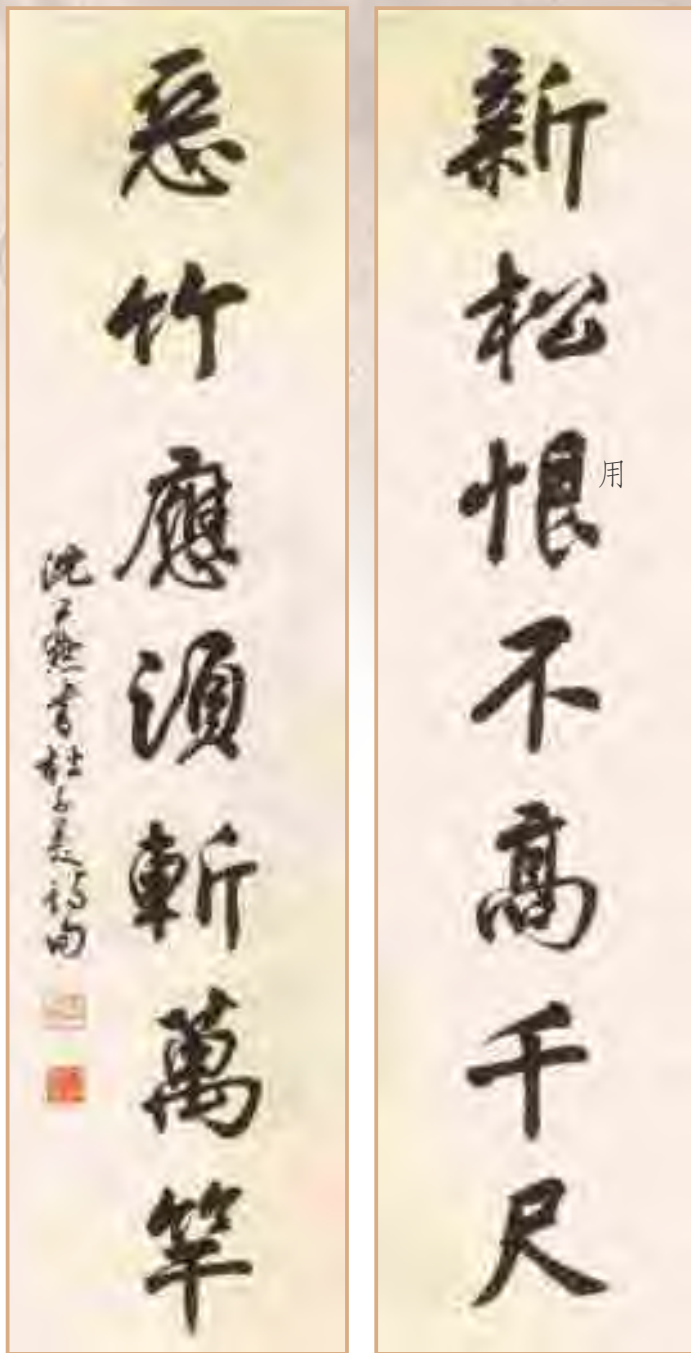 新松恨不高千尺
用
惡竹應須斬萬竿
沈尹默書杜子美詩句